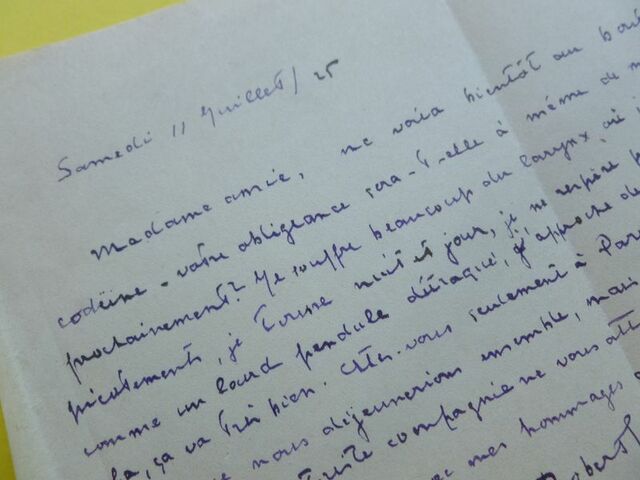 Samedi 11 Juillet / 25
Madame amie, me voici bientôt au bout
codéine - votre obligeance sera-t-elle à même de
prochainement? Je souffre beaucoup du larynx, où
picotements, je tousse nuit et jour, je ne respire
comme un lourd pendule détraqué, j'approche
ça va très bien. Êtes-vous seulement à Paris
nous déjeunerions ensemble, mais
triste compagnie ne vous
mes hommages
Robert